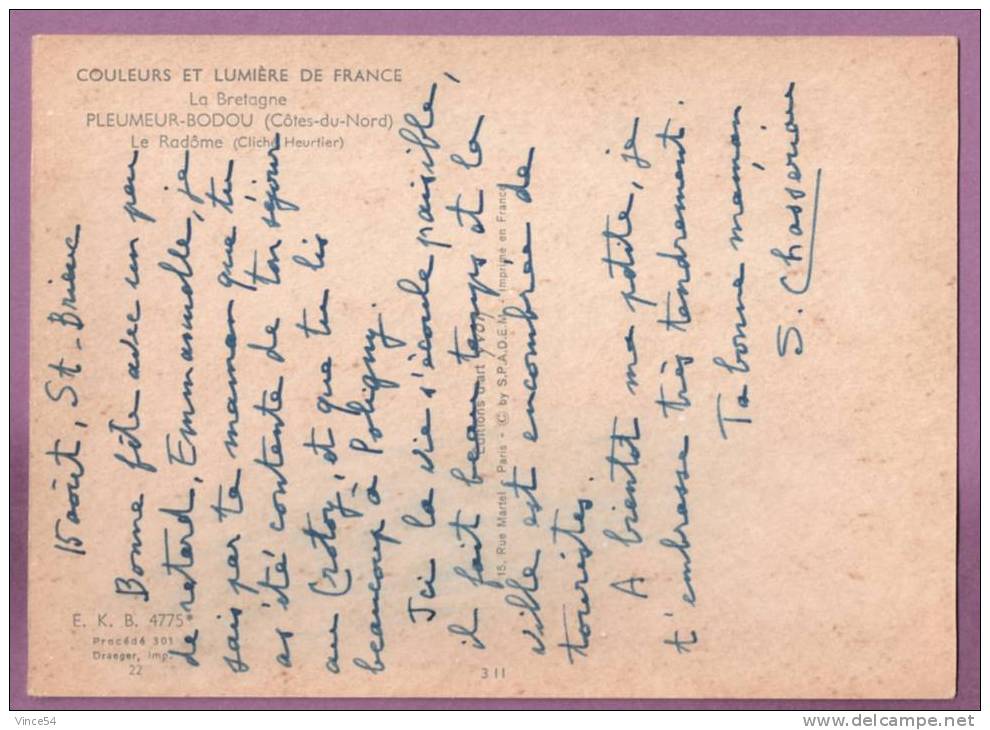 COULEURS ET LUMIÈRE DE FRANCE
La Bretagne
PLEUMEUR-BODOU (Côtes-du-Nord)
Le Radôme (Cliché Heurtier)
15 août, St-Brieuc
Bonne fête avec un peu
de retard, Emmanuelle, je
sais par ta maman que tu
as été contente de ton séjour
au Crotoy, et que tu lis
beaucoup à Poligny.
Ici la vie s'écoule paisible,
il fait beau temps et la
ville est encombrée de
touristes.
A bientôt ma petite, je
t'embrasse très tendrement.
Ta bonne maman
S. Chasseriau
Editions d'art YVON
15, Rue Martel, Paris - © by S.P.A.D.E.M. - Imprimé en France
E. K. B. 4775*
Procédé 301
Draeger, Imp.
22
311
Vince54
http://www.delcampe.net